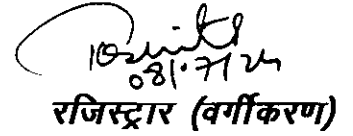 08/7/24
रजिस्ट्रार (वर्गीकरण)